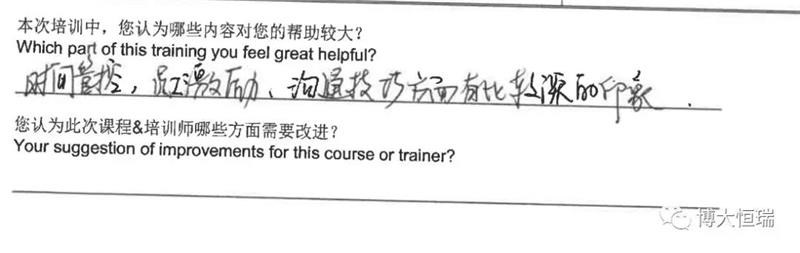 本次培训中，您认为哪些内容对您的帮助较大?
Which part of this training you feel great helpful?
时间管控，员工激励、沟通技巧方面有比较深的印象.
您认为此次课程&培训师哪些方面需要改进？
Your suggestion of improvements for this course or trainer?
博大恒瑞